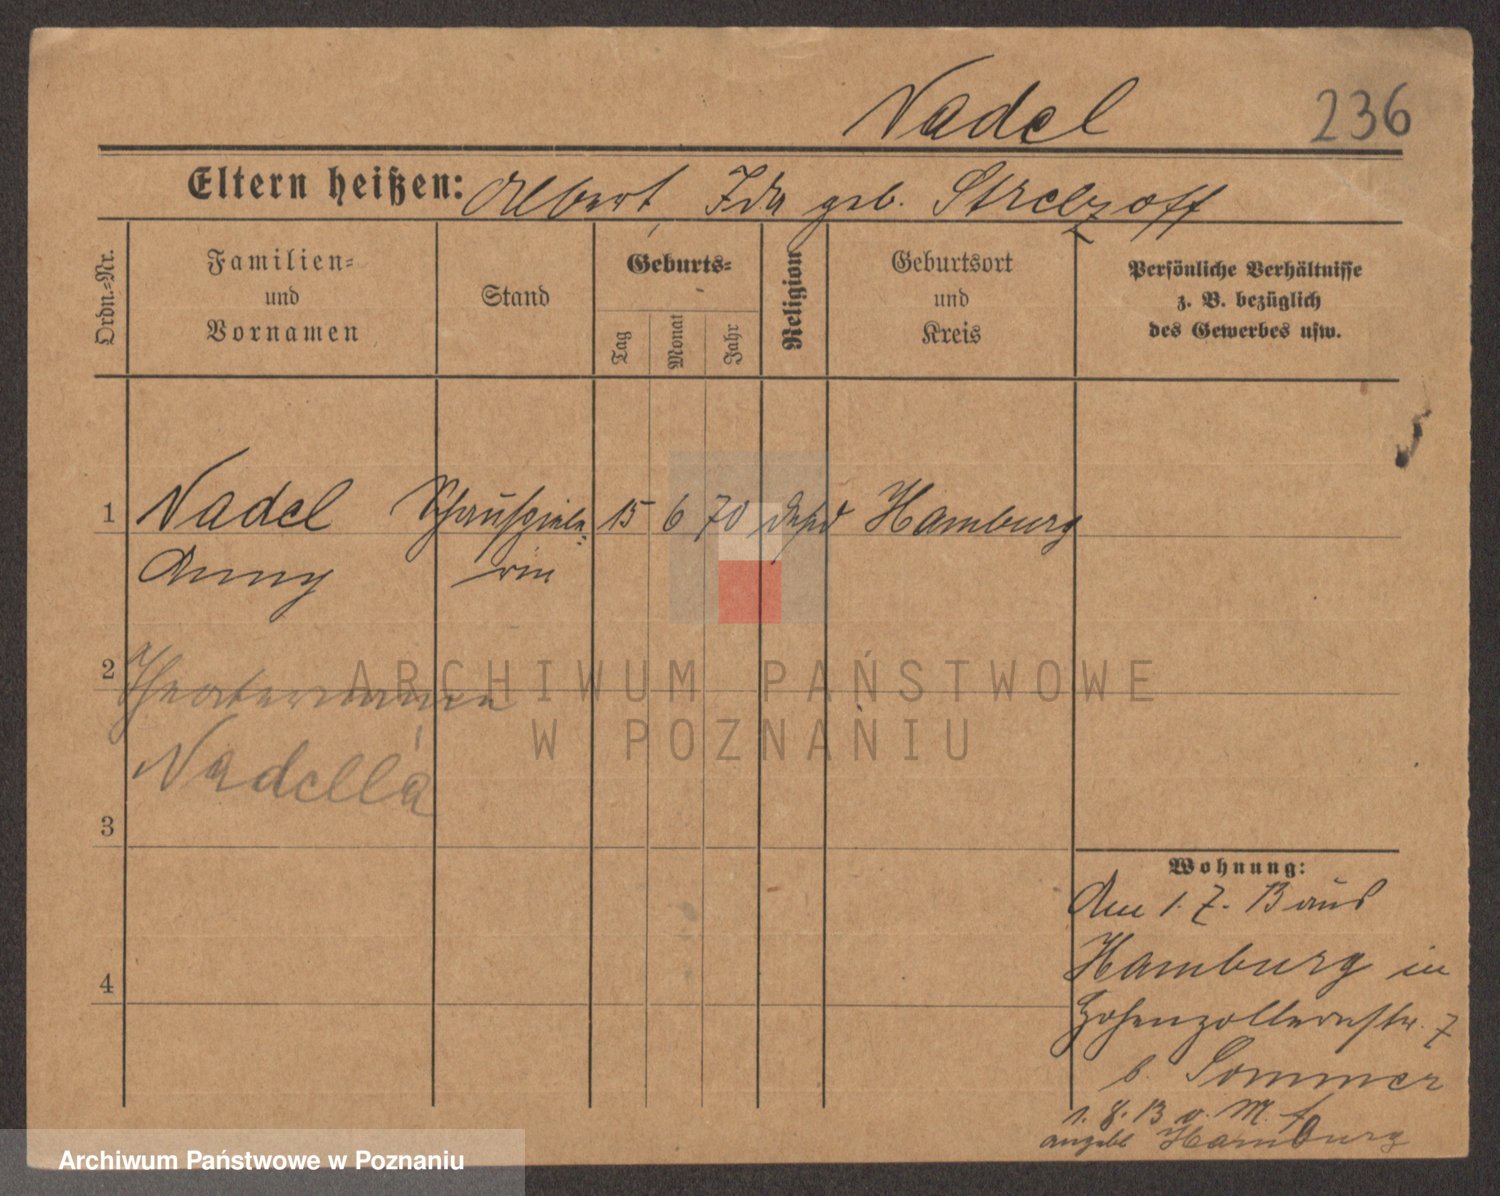 Nadel
236
Eltern heißen: Albert Ida geb. Strelzoff
Ordn.-Nr.
Familien-
und
Vornamen
Stand
Geburts-
Tag
Monat
Jahr
Religion
Geburtsort
und
Kreis
Persönliche Verhältnisse
z. B. bezüglich
des Gewerbes usw.
1 Nadel Schauspiele- 15 6 70 Hamburg
Anny rin
2
Theatername
Nadella
3
4
Wohnung:
Am 1. 7. 13 aus
Hamburg in
Hohenzollernstr. 7
b. Sommer
1. 8. 13 v. M.
angebl Hamburg
ARCHIWUM PAŃSTWOWE
W POZNANIU
Archiwum Państwowe w Poznaniu